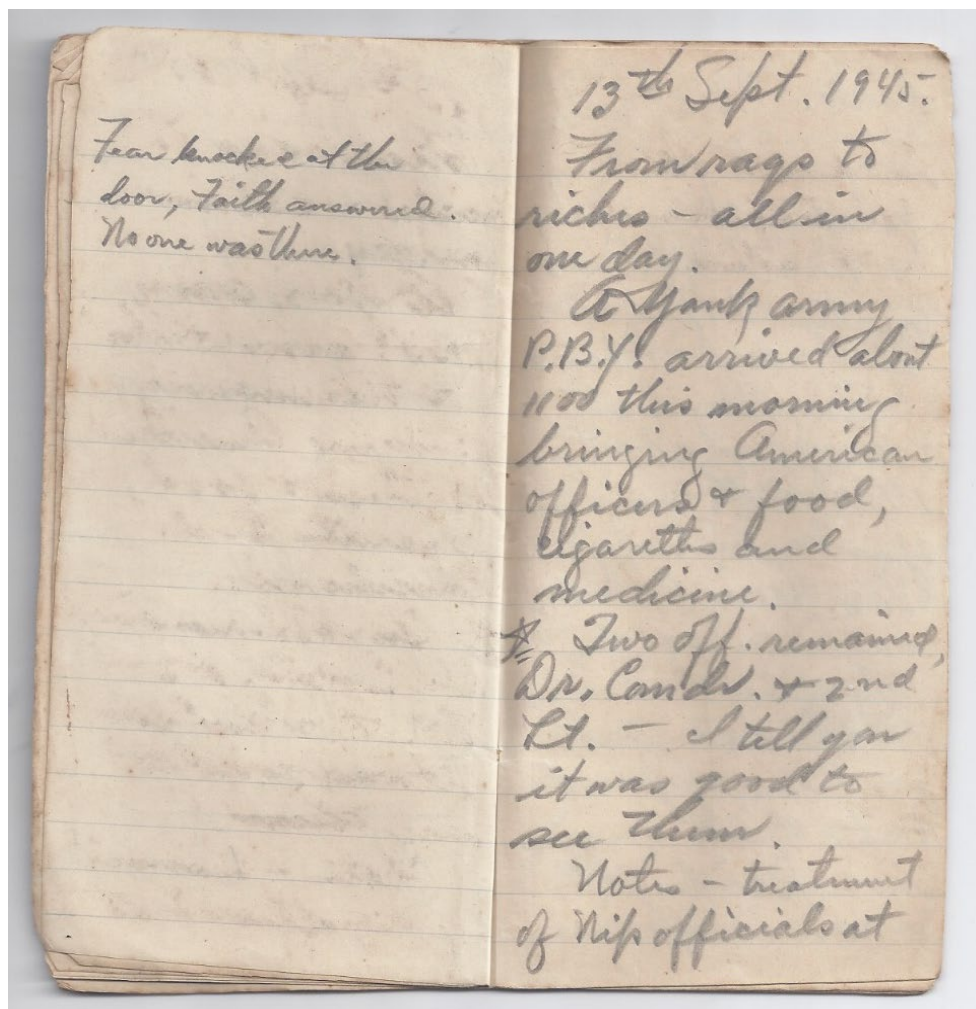 Fear knocked at the
door, Faith answered.
No one was there.
13th Sept. 1945.
From rags to
riches – all in
one day.
A Yank army
P.B.Y. arrived about
1100 this morning
bringing American
officers & food,
cigarettes and
medicine.
Two off. remained,
Dr. Comdr. & 2nd
Lt. – I tell you
it was good to
see them.
Notes – treatment
of Nip officials at